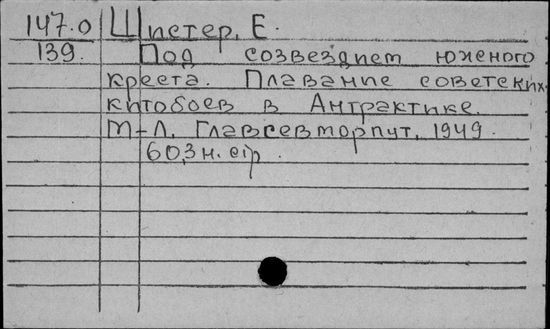 147.0 Шпстер, Е.
139. Под созвездпем юженого
креста. Плаванпе советских
кптобоев в Антрактике.
М-Л. Главсевморпут, 1949.
60,3 н. стр.